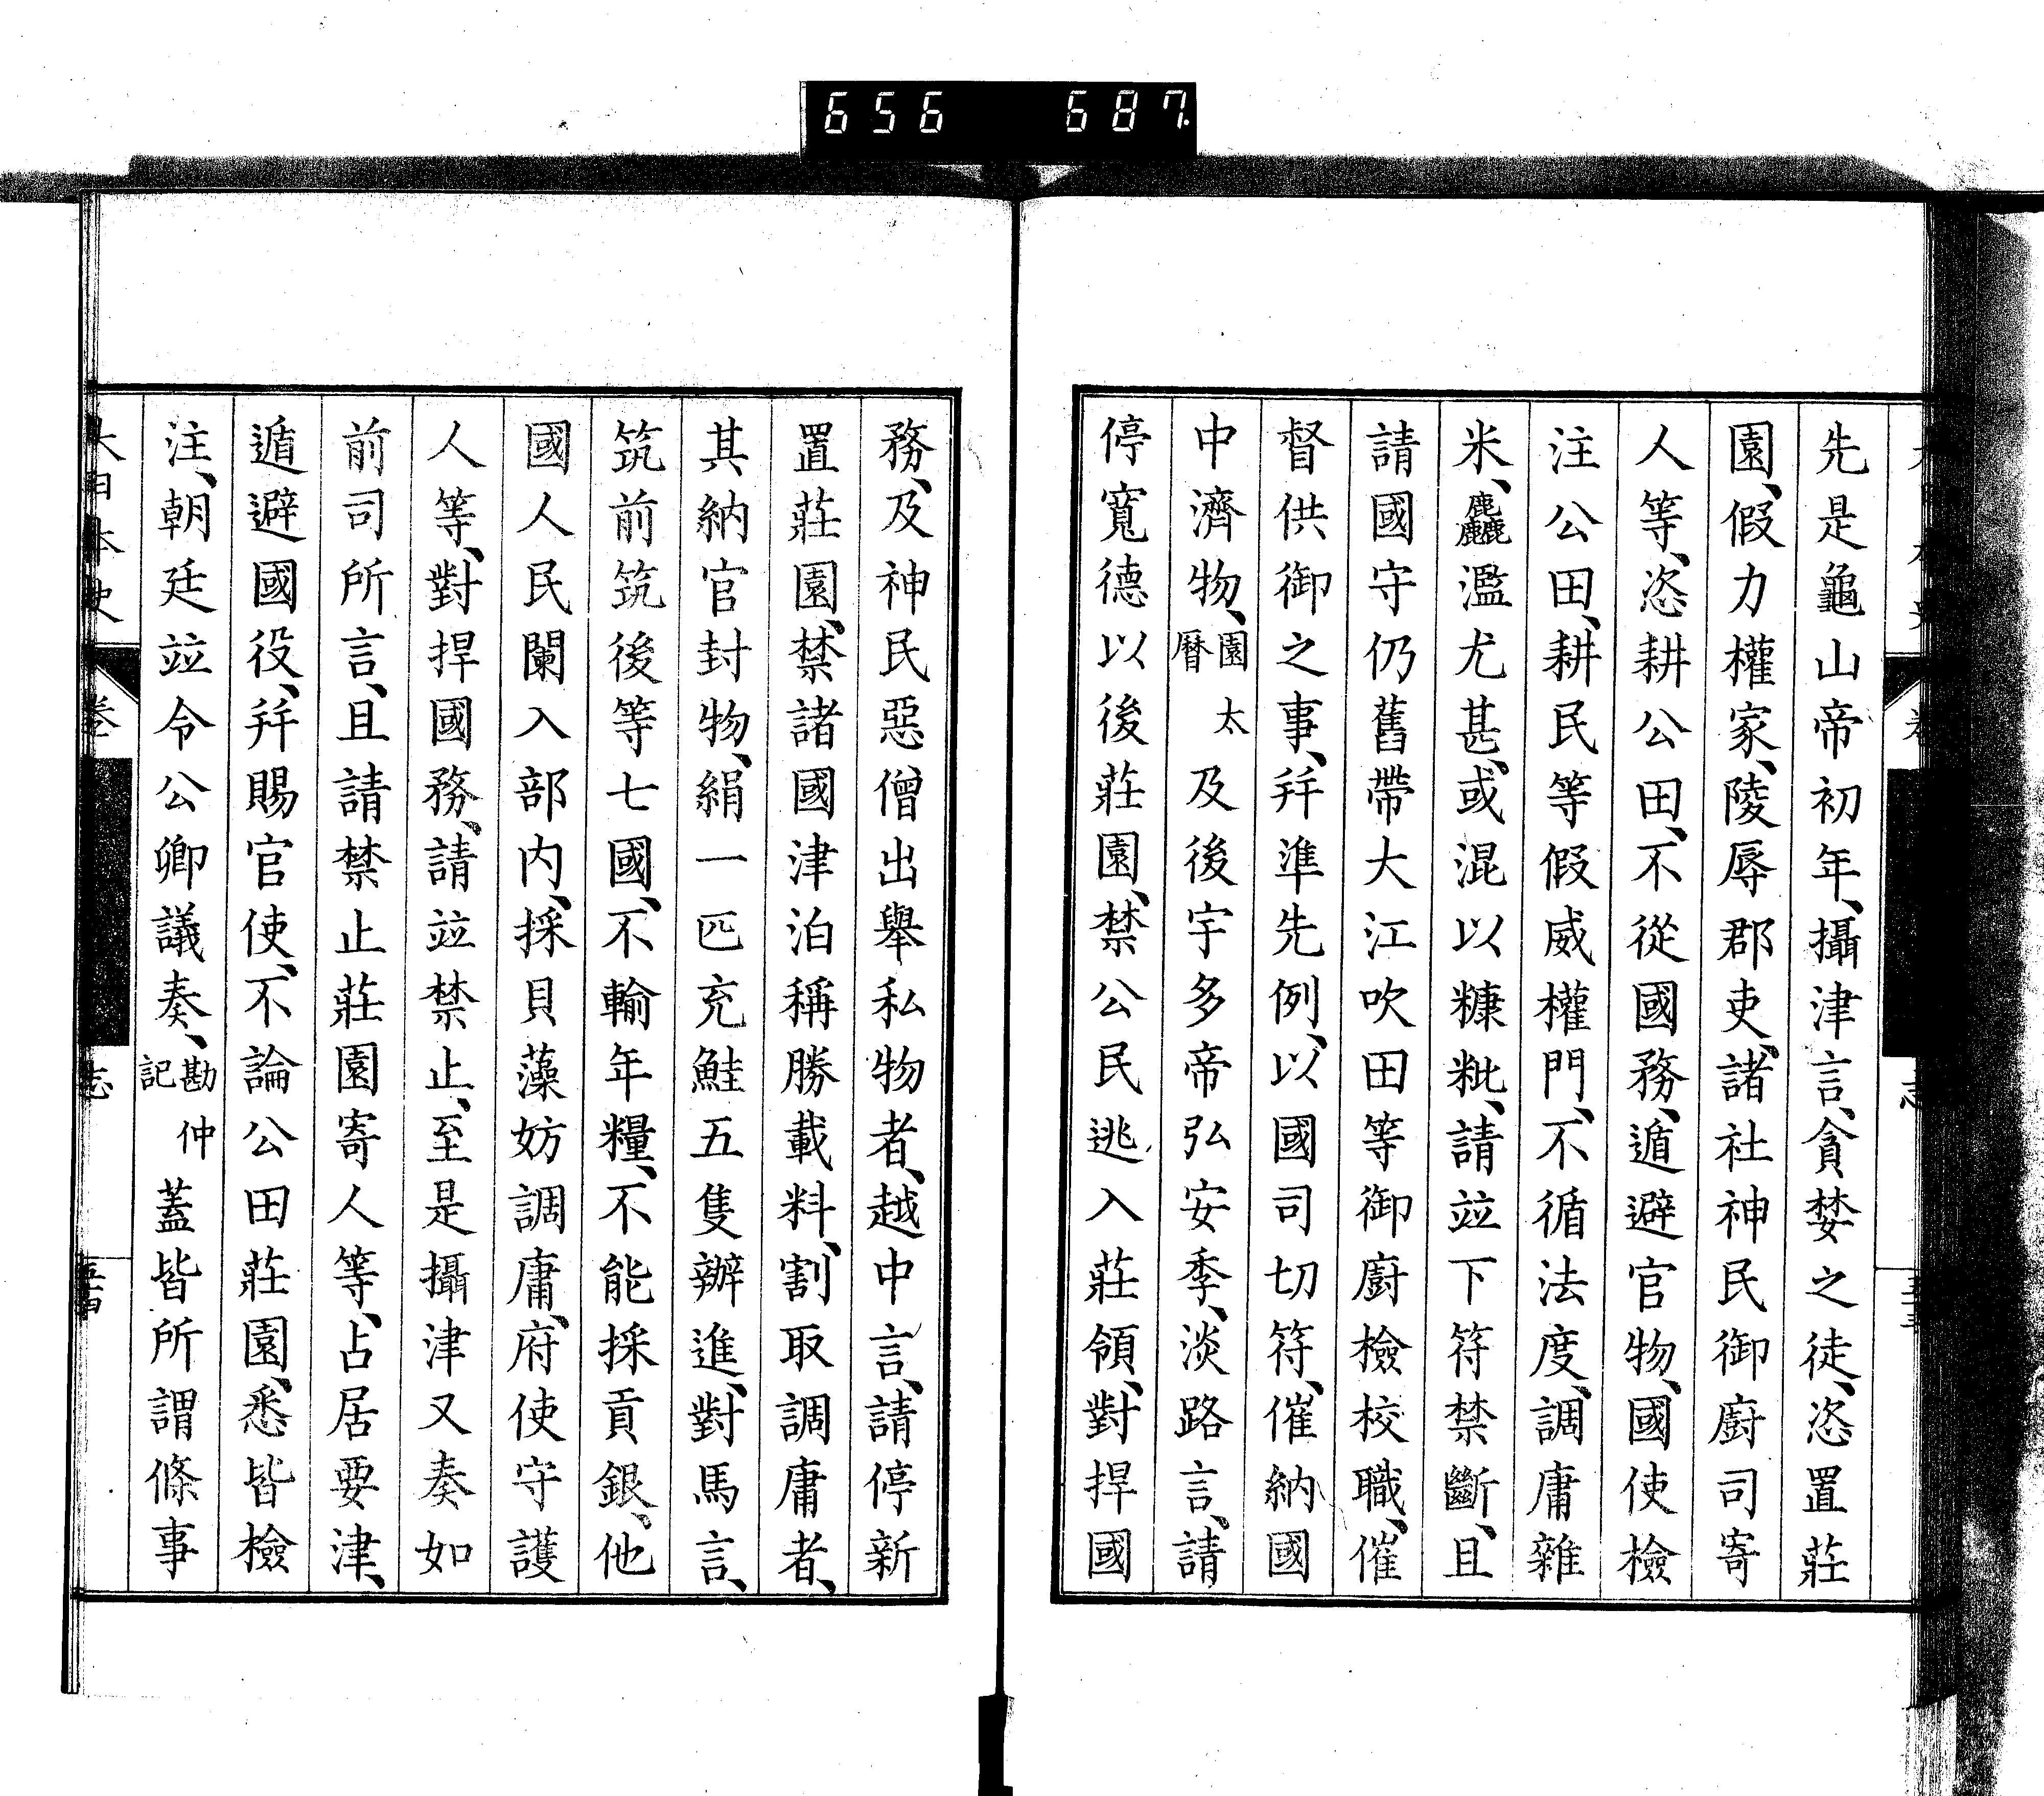 656 687
先是龜山帝初年、攝津言、貪婪之徒、恣置莊
園、假力權家、陵辱郡吏、諸社神民御廚司寄
人等、恣耕公田、不從國務、遁避官物、國使檢
注公田、耕民等假威權門、不循法度、調庸雜
米、麤濫尤甚、或混以糠粃、請竝下符禁斷、且
請國守仍舊帶大江吹田等御廚檢校職、催
督供御之事、幷準先例、以國司切符、催納國
中濟物、園太曆及後宇多帝弘安季、淡路言、請
停寬德以後莊園、禁公民逃入莊領、對捍國
務、及神民惡僧出舉私物者、越中言、請停新
置莊園、禁諸國津泊稱勝載料、割取調庸者、
其納官封物、絹一匹充鮭五隻辦進、對馬言、
筑前筑後等七國、不輸年糧、不能採貢銀、他
國人民闌入部內、採貝藻妨調庸、府使守護
人等、對捍國務、請竝禁止、至是攝津又奏如
前司所言、且請禁止莊園寄人等、占居要津、
遁避國役、幷賜官使、不論公田莊園、悉皆檢
注、朝廷竝令公卿議奏、勘仲記蓋皆所謂條事
大日本史
卷
志